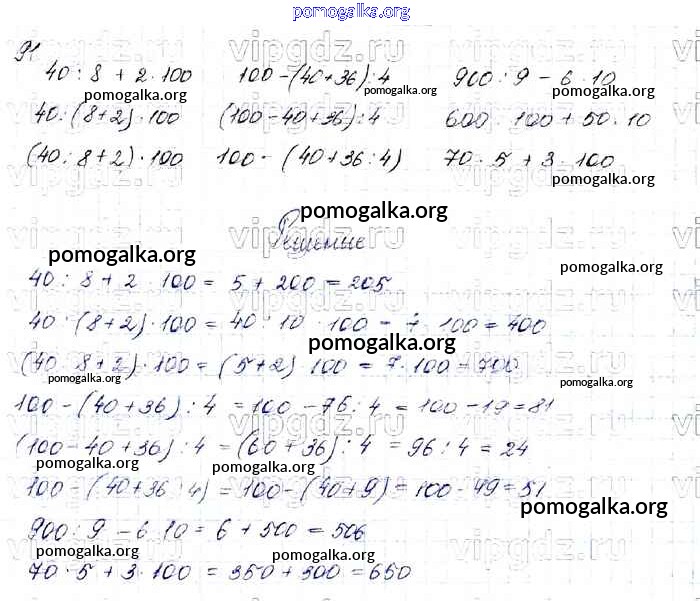 pomogalka.org
91
40 : 8 + 2 · 100 100 - (40 + 36) : 4 900 : 9 - 6 · 10
pomogalka.org pomogalka.org pomogalka.org
40 : (8 + 2) · 100 (100 - 40 + 36) : 4 600 : 100 + 50 · 10
(40 : 8 + 2) · 100 100 - (40 + 36 : 4) 70 · 5 + 3 · 100
pomogalka.org
pomogalka.org
Решение
pomogalka.org pomogalka.org
40 : 8 + 2 · 100 = 5 + 200 = 205
40 : (8 + 2) · 100 = 40 : 10 · 100 = 100 = 400
pomogalka.org
(40 : 8 + 2) · 100 = (5 + 2) · 100 = 7 · 100 = 700
pomogalka.org pomogalka.org pomogalka.org
100 - (40 + 36) : 4 = 100 - 76 : 4 = 100 - 19 = 81
(100 - 40 + 36) : 4 = (60 + 36) : 4 = 96 : 4 = 24
pomogalka.org pomogalka.org
100 - (40 + 36 : 4) = 100 - (40 + 9) = 100 - 49 = 51
pomogalka.org
900 : 9 - 6 · 10 = 6 + 500 = 506
pomogalka.org pomogalka.org
70 · 5 + 3 · 100 = 350 + 300 = 650